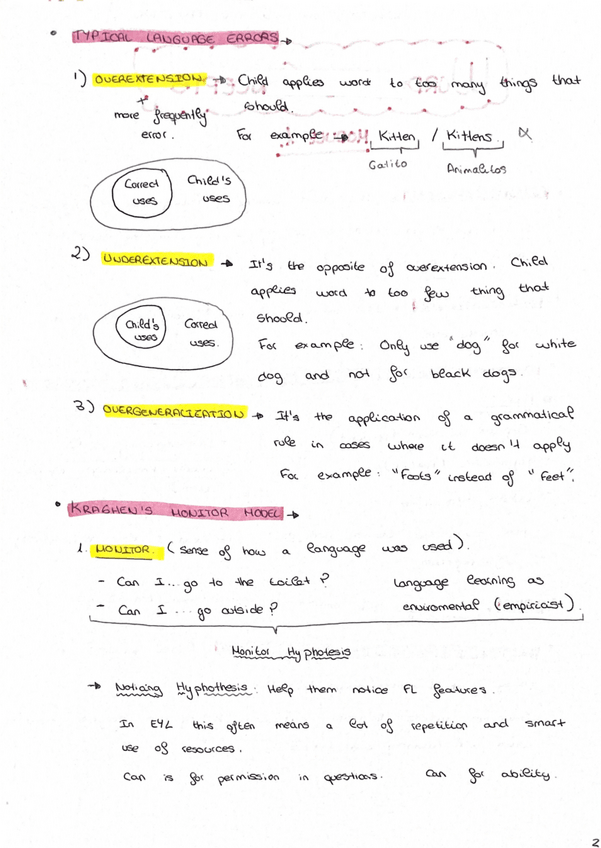 • TYPICAL LANGUAGE ERRORS →
1) OVEREXTENSION → Child applies word to too many things that
should.
+ more frequently
error.
For example → Kitten / Kittens
Gatito
Animalitos
Correct
uses
Child's
uses
2) UNDEREXTENSION → It's the opposite of overextension. Child
applies word to too few thing that
should.
Child's
uses
Correct
uses.
For example: Only use "dog" for white
dog and not for black dogs.
3) OVERGENERALIZATION → It's the application of a grammatical
rule in cases where it doesn't apply
For example: "Foots" instead of "feet".
• KRAGHEN'S MONITOR MODEL →
1. MONITOR. (sense of how a language was used).
- Can I... go to the toilet?
- Can I ... go outside?
Language learning as
enviromental (empiricist).
Monitor Hyphotesis
→ Noticing Hyphothesis: Help them notice FL features.
In EYL this often means a lot of repetition and smart
use of resources.
Can is for permission in questions. Can for ability.
2